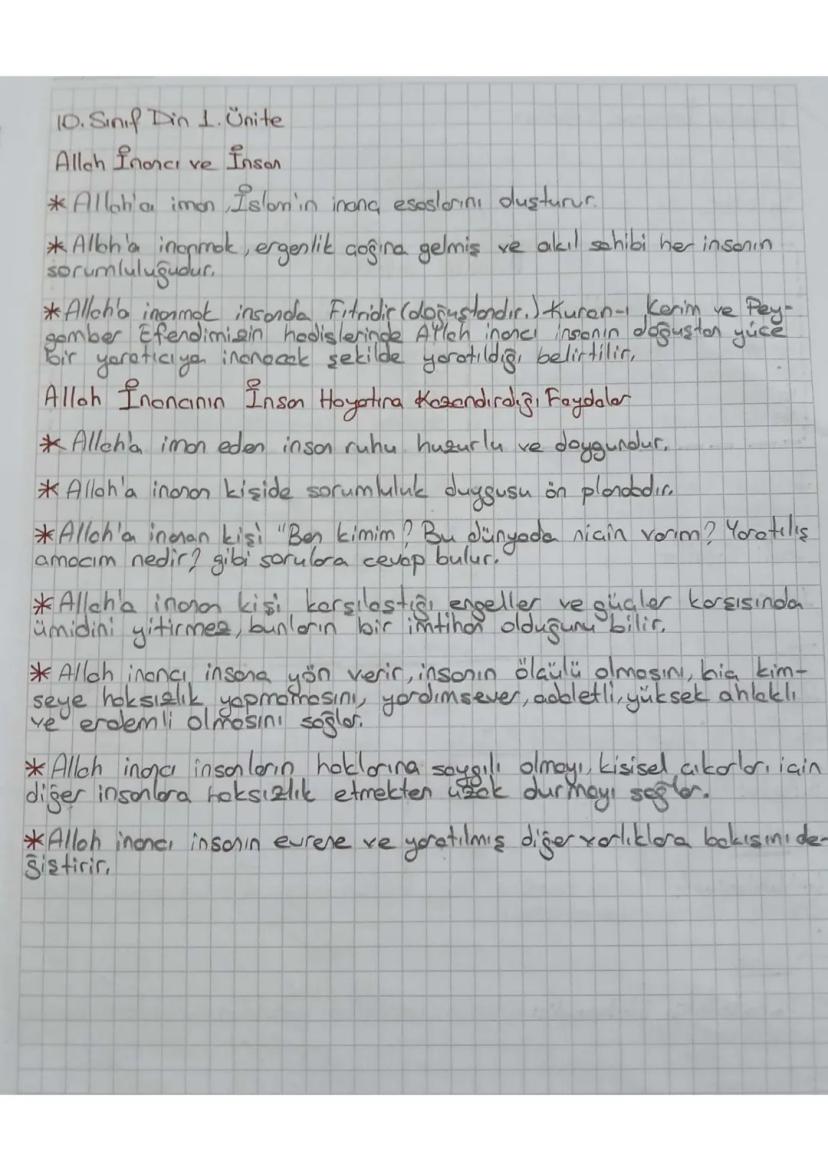 10. Sınıf Din 1. Ünite
Allah İnancı ve İnsan
* Allah'a iman, İslam'ın inanç esaslarını oluşturur.
* Allah'a inanmak, ergenlik çağına gelmiş ve akıl sahibi her insanın
sorumluluğudur.
* Allah'a inanmak insanda Fıtridir (doğuştandır.) Kuran-ı Kerim ve Pey-
gamber Efendimizin hadislerinde Allah inancı insanın doğuştan yüce
bir yaratıcıya inanacak şekilde yaratıldığı belirtilir.
Allah İnancının İnsan Hayatına Kazandırdığı Faydalar
* Allah'a iman eden insan ruhu huzurlu ve doygundur.
* Allah'a inanan kişide sorumluluk duygusu ön plandadır.
* Allah'a inanan kişi "Ben kimim? Bu dünyada niçin varım? Yaratılış
amacım nedir? gibi sorulara cevap bulur.
* Allah'a inanan kişi karşılaştığı engeller ve güçler karşısında
ümidini yitirmez, bunların bir imtihan olduğunu bilir.
* Allah inancı insana yön verir, insanın ölçülü olmasını, hiç kim-
seye haksızlık yapmamasını, yardımsever, adaletli, yüksek ahlaklı
ve erdemli olmasını sağlar.
* Allah inancı insanların haklarına saygılı olmayı, kişisel çıkarları için
diğer insanlara haksızlık etmekten uzak durmayı sağlar.
* Allah inancı insanın evrene ve yaratılmış diğer varlıklara bakışını de-
ğiştirir.